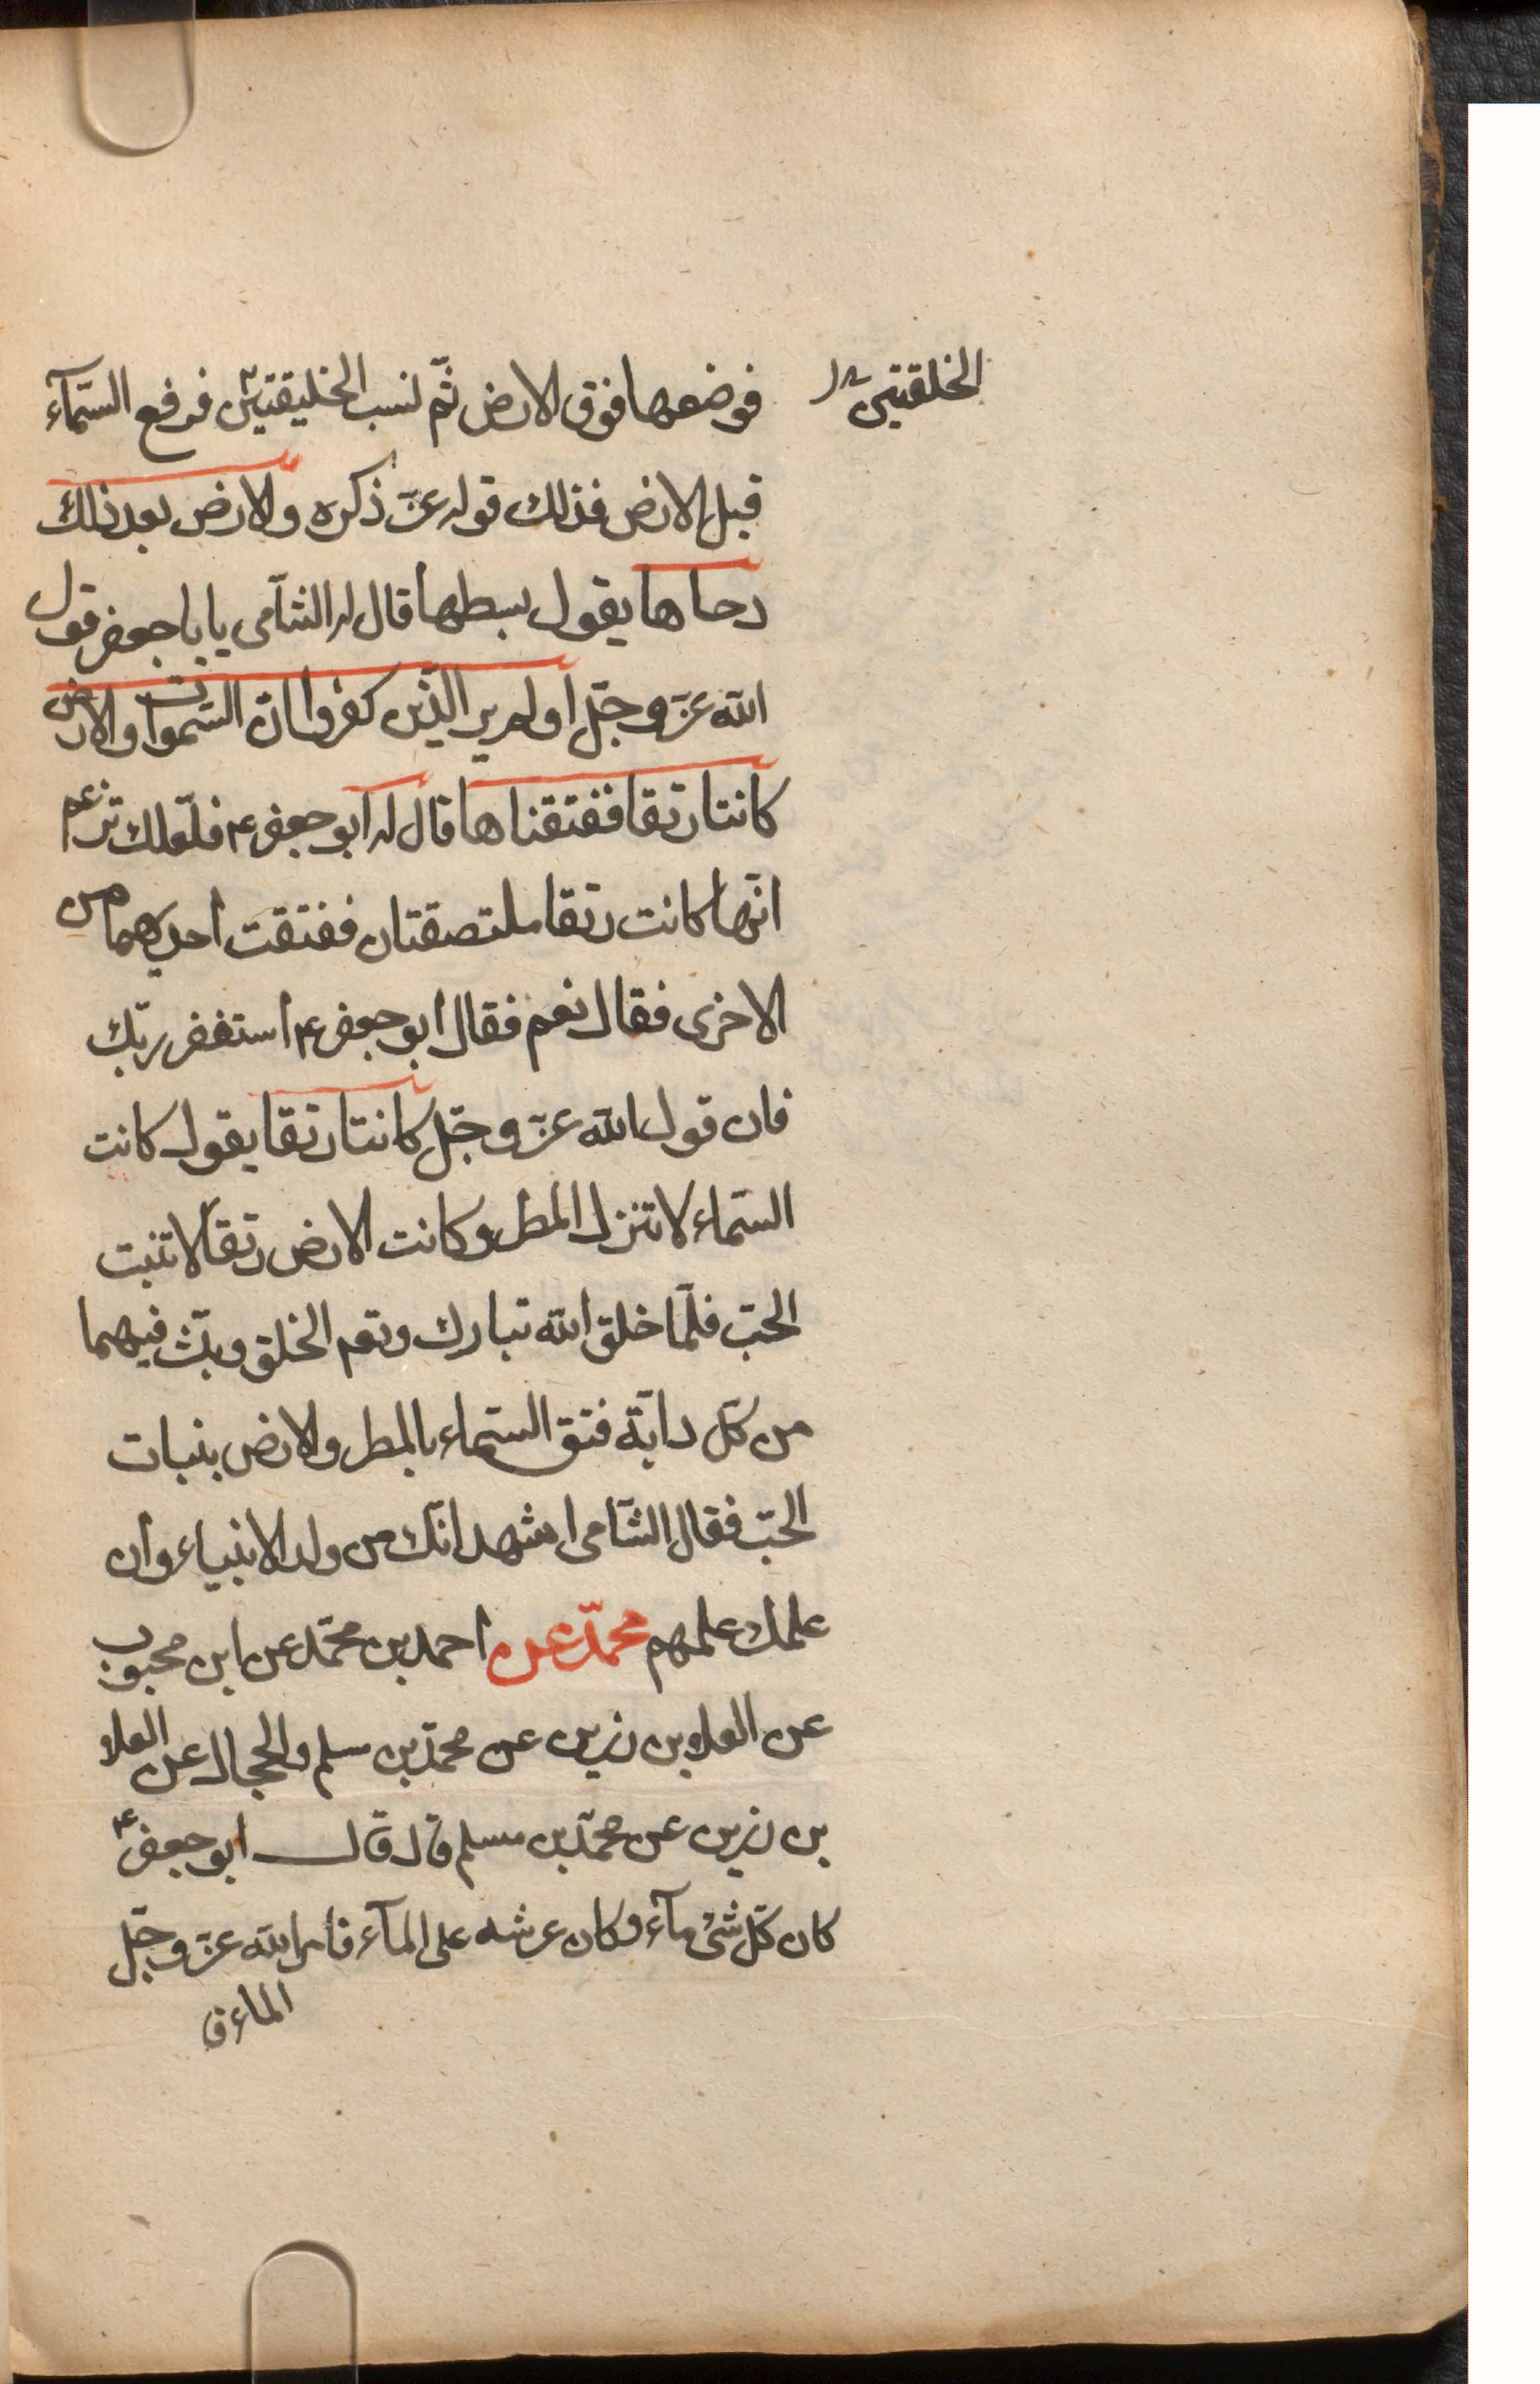 الخلقتين
فوضعها فوق الارض ثمّ نسب الخليقتين فرفع السّمآء
قبل الارض فذلك قوله عزّ ذكره والارض بعد ذلك
دحاها يقول بسطها قال له الشّامى يا باجعفر قول
الله عزّ وجّل اولم ير الّذين كفروا انّ السّموات والارض
كانتا رتقا ففتقناها قال له ابو جعفر ع فلعّلك تزعم
انّها كانت رتقا ملتصقتان ففتقت احديهما من
الاخرى فقال نعم فقال ابو جعفر ع استغفر ربّك
فان قول الله عزّ وجّل كانتا رتقا يقول كانت
السّماء لا تنزل المطر وكانت الارض رتقا لا تنبت
الحبّ فلمّا خلق الله تبارك وتعم الخلق وبثّ فيهما
من كّل دابّة فتق السّماء بالمطر والارض بنبات
الحبّ فقال الشّامى اشهد انّك من ولد الانبياء وان
علمك علمهم محمّد عن احمد بن محمّد عن ابن محبوب
عن العلا بن رزين عن محمّد بن سلم والحجال عن العلا
بن رزين عن محمّد بن مسلم قال قال ابو جعفر ع
كان كّل شئ مآء وكان عرشه على المآء فامر الله عزّ وجّل
الماء ف